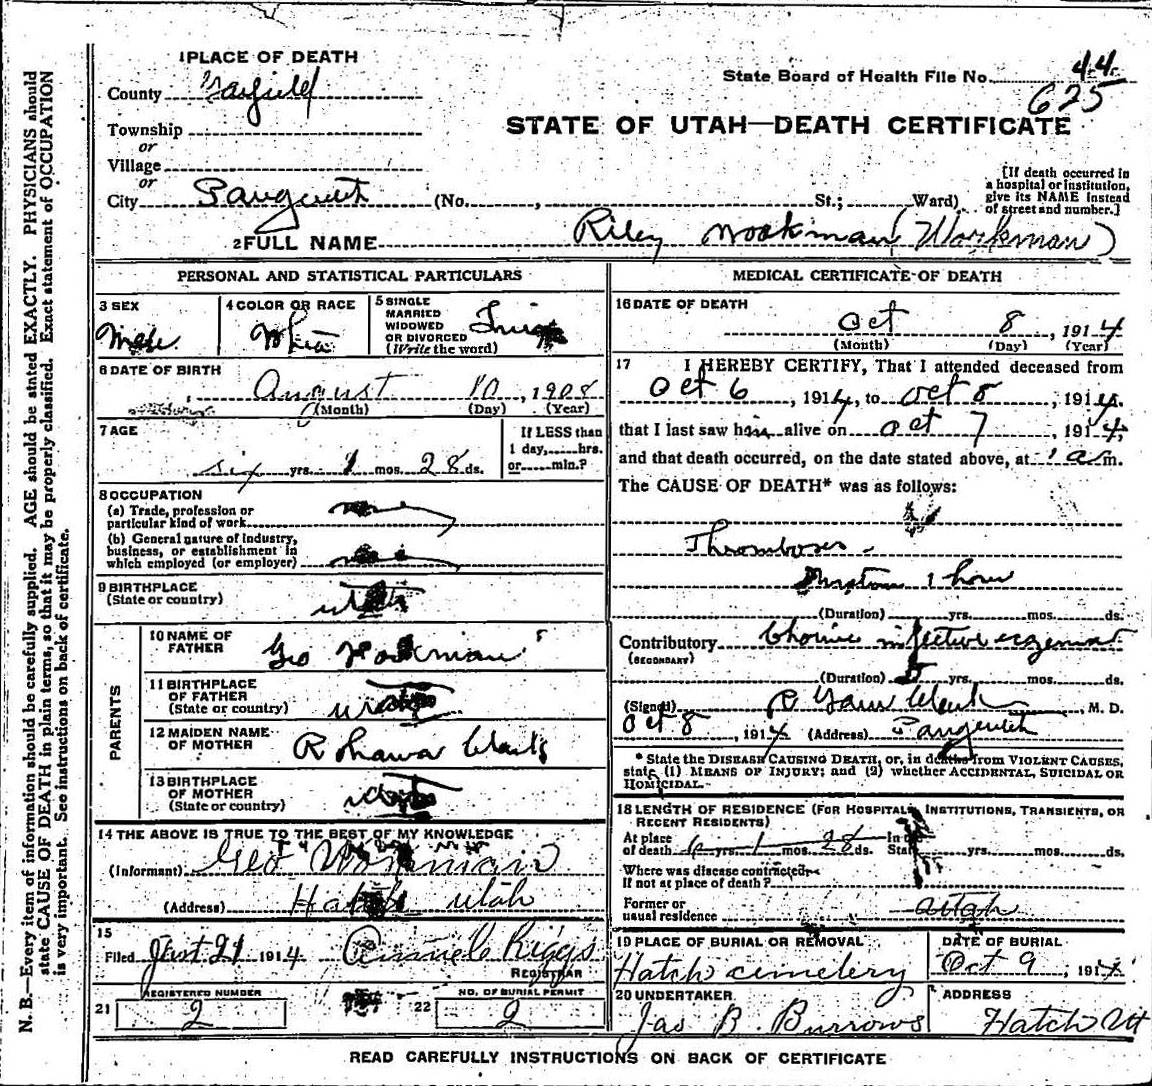 1 PLACE OF DEATH
County Garfield
Township
or
Village
or
City Panguitch (No. , St.; Ward)
State Board of Health File No. 44
625
STATE OF UTAH—DEATH CERTIFICATE
[If death occurred in
a hospital or institution,
give its NAME instead
of street and number.]
2 FULL NAME Riley Workman (Workman)
PERSONAL AND STATISTICAL PARTICULARS
3 SEX
Male
4 COLOR OR RACE
White
5 SINGLE
MARRIED
WIDOWED
OR DIVORCED
(Write the word)
6 DATE OF BIRTH
August 10, 1908
(Month) (Day) (Year)
7 AGE
six yrs. 1 mos. 28 ds.
If LESS than
1 day, hrs.
or min.?
8 OCCUPATION
(a) Trade, profession or
particular kind of work
(b) General nature of industry,
business, or establishment in
which employed (or employer)
9 BIRTHPLACE
(State or country)
utah
PARENTS
10 NAME OF
FATHER
Geo Workman
11 BIRTHPLACE
OF FATHER
(State or country)
utah
12 MAIDEN NAME
OF MOTHER
13 BIRTHPLACE
OF MOTHER
(State or country)
utah
14 THE ABOVE IS TRUE TO THE BEST OF MY KNOWLEDGE
(Informant) Geo Workman
(Address) Hatch utah
15
Filed 21 1914 Riggs
REGISTRAR
21 REGISTERED NUMBER
2
22 NO. OF BURIAL PERMIT
2
MEDICAL CERTIFICATE OF DEATH
16 DATE OF DEATH
Oct 8, 1914
(Month) (Day) (Year)
17 I HEREBY CERTIFY, That I attended deceased from
Oct 6, 1914, to Oct 8, 1914.
that I last saw him alive on Oct 7, 1914,
and that death occurred, on the date stated above, at 1 a m.
The CAUSE OF DEATH* was as follows:
Thromboses
1 hour
(Duration) yrs. mos. ds.
Contributory infective eczema
(SECONDARY)
(Duration) yrs. mos. ds.
(Signed) R Clark, M. D.
Oct 8, 1914 (Address) Panguitch
* State the DISEASE CAUSING DEATH, or, in deaths from VIOLENT CAUSES,
state (1) MEANS OF INJURY; and (2) whether ACCIDENTAL, SUICIDAL OR
HOMICIDAL.
18 LENGTH OF RESIDENCE (FOR HOSPITALS, INSTITUTIONS, TRANSIENTS, OR
RECENT RESIDENTS)
At place
of death 6 yrs. 1 mos. 28 ds. In
State yrs. mos. ds.
Where was disease contracted
If not at place of death?
Former or
usual residence utah
19 PLACE OF BURIAL OR REMOVAL
Hatch cemetery
DATE OF BURIAL
Oct 9, 1914
20 UNDERTAKER
Jas B. Burrows
ADDRESS
Hatch Ut
READ CAREFULLY INSTRUCTIONS ON BACK OF CERTIFICATE
N. B.—Every item of information should be carefully supplied. AGE should be stated EXACTLY. PHYSICIANS should
state CAUSE OF DEATH in plain terms, so that it may be properly classified. Exact statement of OCCUPATION
is very important. See instructions on back of certificate.